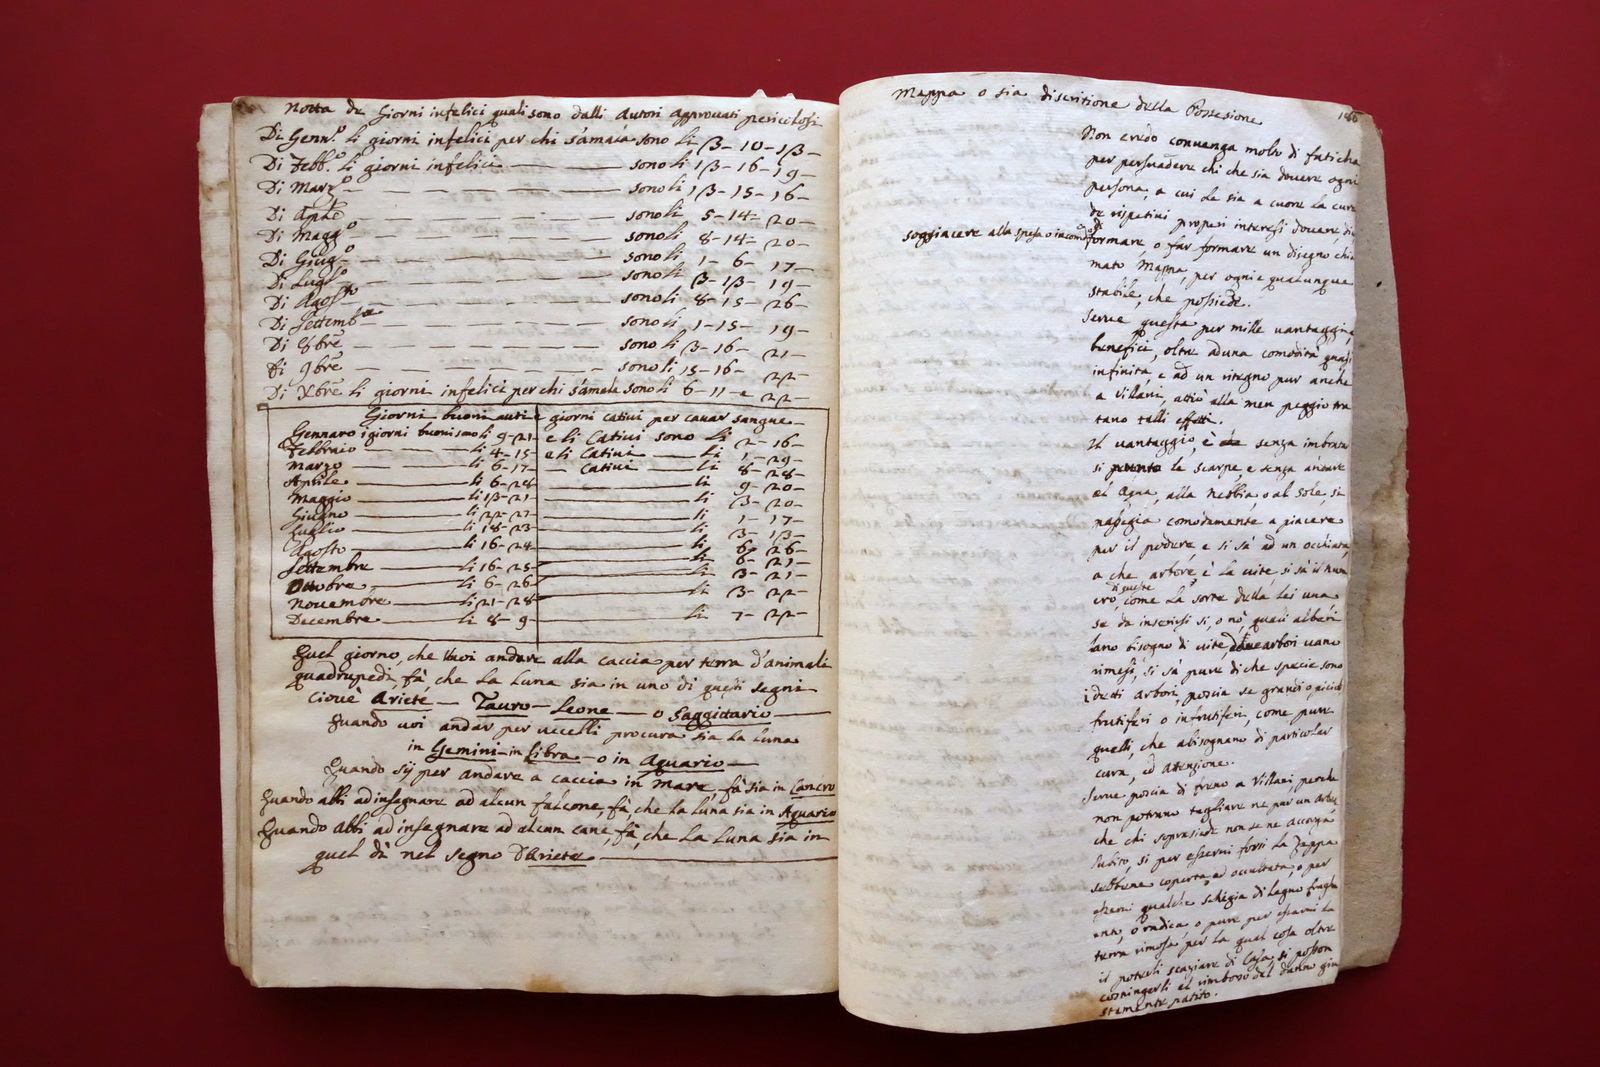 Notta de Giorni infelici quali sono dalli Autori approvati pericolosi
Di Genn.º li giorni infelici per chi s'amala sono li 3- 10- 13-
Di Febb.º li giorni infelici sono li 13- 16- 19-
Di Marzº sono li 13- 15- 16-
Di Aple sono li 5- 14- 20-
Di Maggº sono li 8- 14- 20-
Di Giugº sono li 1- 6- 17-
Di Luglº sono li 3- 13- 19-
Di Agosto sono li 8- 15- 26-
Di Settembre sono li 1- 15- 19-
Di 8bre sono li 3- 16- 21-
Di 9bre sono li 15- 16- 22-
Di Xbre li giorni infelici per chi s'amala sono li 6- 11- e 22-
Giorni buoni e giorni cativi per cavar sangue
Gennaro i giorni buoni sono li 9-21- e li Cativi sono li 2- 16-
Febbraio li 4-15- e li Cativi li 1- 29-
Marzo li 6-17- Cativi li 8- 28-
Aprile li 6-28 9- 20-
Maggio li 13-21 li 3- 20
Giugno li 22-27 li 1- 17-
Luglio li 18-23 li 3- 13-
Agosto li 16-24 li 6- 26-
Settembre li 16-25 li 8- 21-
Ottobre li 6-26 li 3- 21-
Novembre li 21-28 li 3- 22-
Decembre li 8-9 li 7- 22-
Quel giorno, che vuoi andare alla caccia per terra d'animali
quadrupedi, fà, che la Luna sia in uno di questi segni
cioué Ariete - Tauro - Leone - o Saggittario
Quando voi andar per uccelli procura sia la luna
in Gemini - in Libra - o in Aquario
Quando sij per andare a caccia in Mare, fà sia in Cancro
Quando abbi ad insegnare ad alcun falcone, fà, che la luna sia in Aquario
Quando Abbi ad insegnare ad alcun cane, fà, che La Luna sia in
quel dà nel segno d'Ariete
Mappa o sia discritione della Possesione
186
Non credo convenga molto di faticha
per persuadere chi che sia dovere ogni
persona, a cui le sia a cuore la cura
de rispetivi propri interessi dovere, di
soggiacere alla spesa o incomodo di
formare, o far formare un disegno chia
mato Mappa, per ogni e qualunque
stabile, che possiede.
Serve questa per mille vantaggi,
benefici, oltre ad una comodità quasi
infinita e ad un ritegno pur anche
a Villani, acciò alla men peggio tra
tano talli effetti.
Il vantaggio è senza imbratar
si le scarpe, e senza andare
al Aqua, alla nebbia o al sole, si
passegia comodamente a piacere
per il podere e si sà ad un occhiata
a che arbore è la vite si sà il num
ero di queste, come la sorte della lei uva
se da inserirsi si, o nò, quali alberi
bisogno di vite dove arbori vano
rimessi, si sà pure di che specie sono
i deti Arbori, poscia se grandi o picioli
fruttiferi o infrutiferi, come pure
quelli, che abisognano di particolar
cura, ed attenzione.
Serve poscia di freno a Villani, perche
non potrano tagliare ne pur un arbore
che chi soprasiede non se ne accorga
subito, si per esservi forsi la Zeppa
sebbene coperta, ed occultata, o per
esservi qualche schegia di legno
o radica o pure per esservi la
terra rimossa per la qual cosa oltre
il poterli scaziare di Casa, si posson
costringerli al rimborso del danno giu
stamente patito.